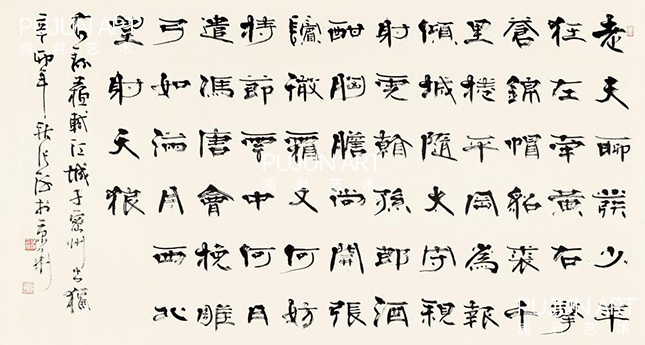 老夫聊發少年
狂左牽黃右擎
蒼錦帽貂裘千
里捲平岡為報
傾城隨太守親
射虎看孫郎酒
酣胸膽尚開張
鬢微霜又何妨
持節雲中何日
遣馮唐會挽雕
弓如滿月西北
望射天狼
右錄蘇軾江城子密州出獵
辛卯年秋
PUJUN ART
浦君艺术